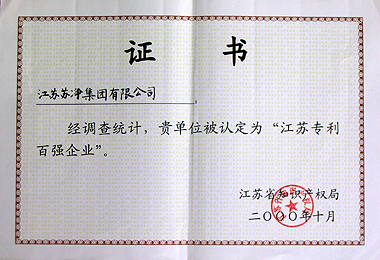 证 书
江苏苏净集团有限公司
经调查统计，贵单位被认定为“江苏专利
百强企业”。
江苏省知识产权局
二〇〇〇年十月